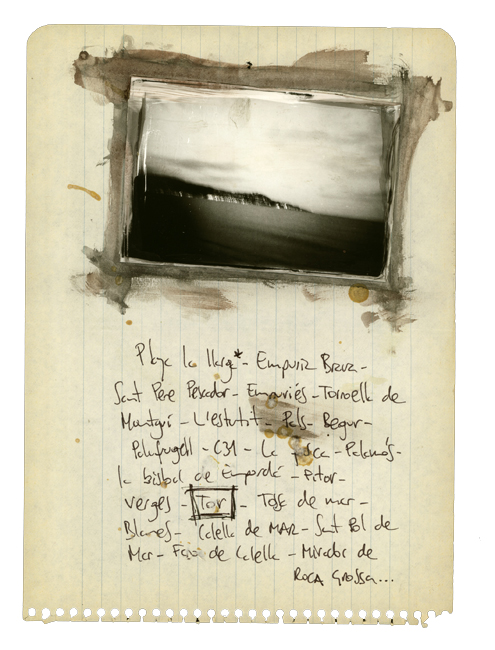 Playa la llarga* - Empuria Brava -
Sant Pere Pescador - Empuriés - Torroella de
Montgrí - L'estutit - Pals - Begur -
Palafrugell - C31 - La - Palamós -
la bisbal de Empordà -
Verges - Tor - Tossa de mar -
Blanes - Calella de MAR - Sant Pol de
Mar - Faro de Calella - Mirador de
ROCA GROSSA...